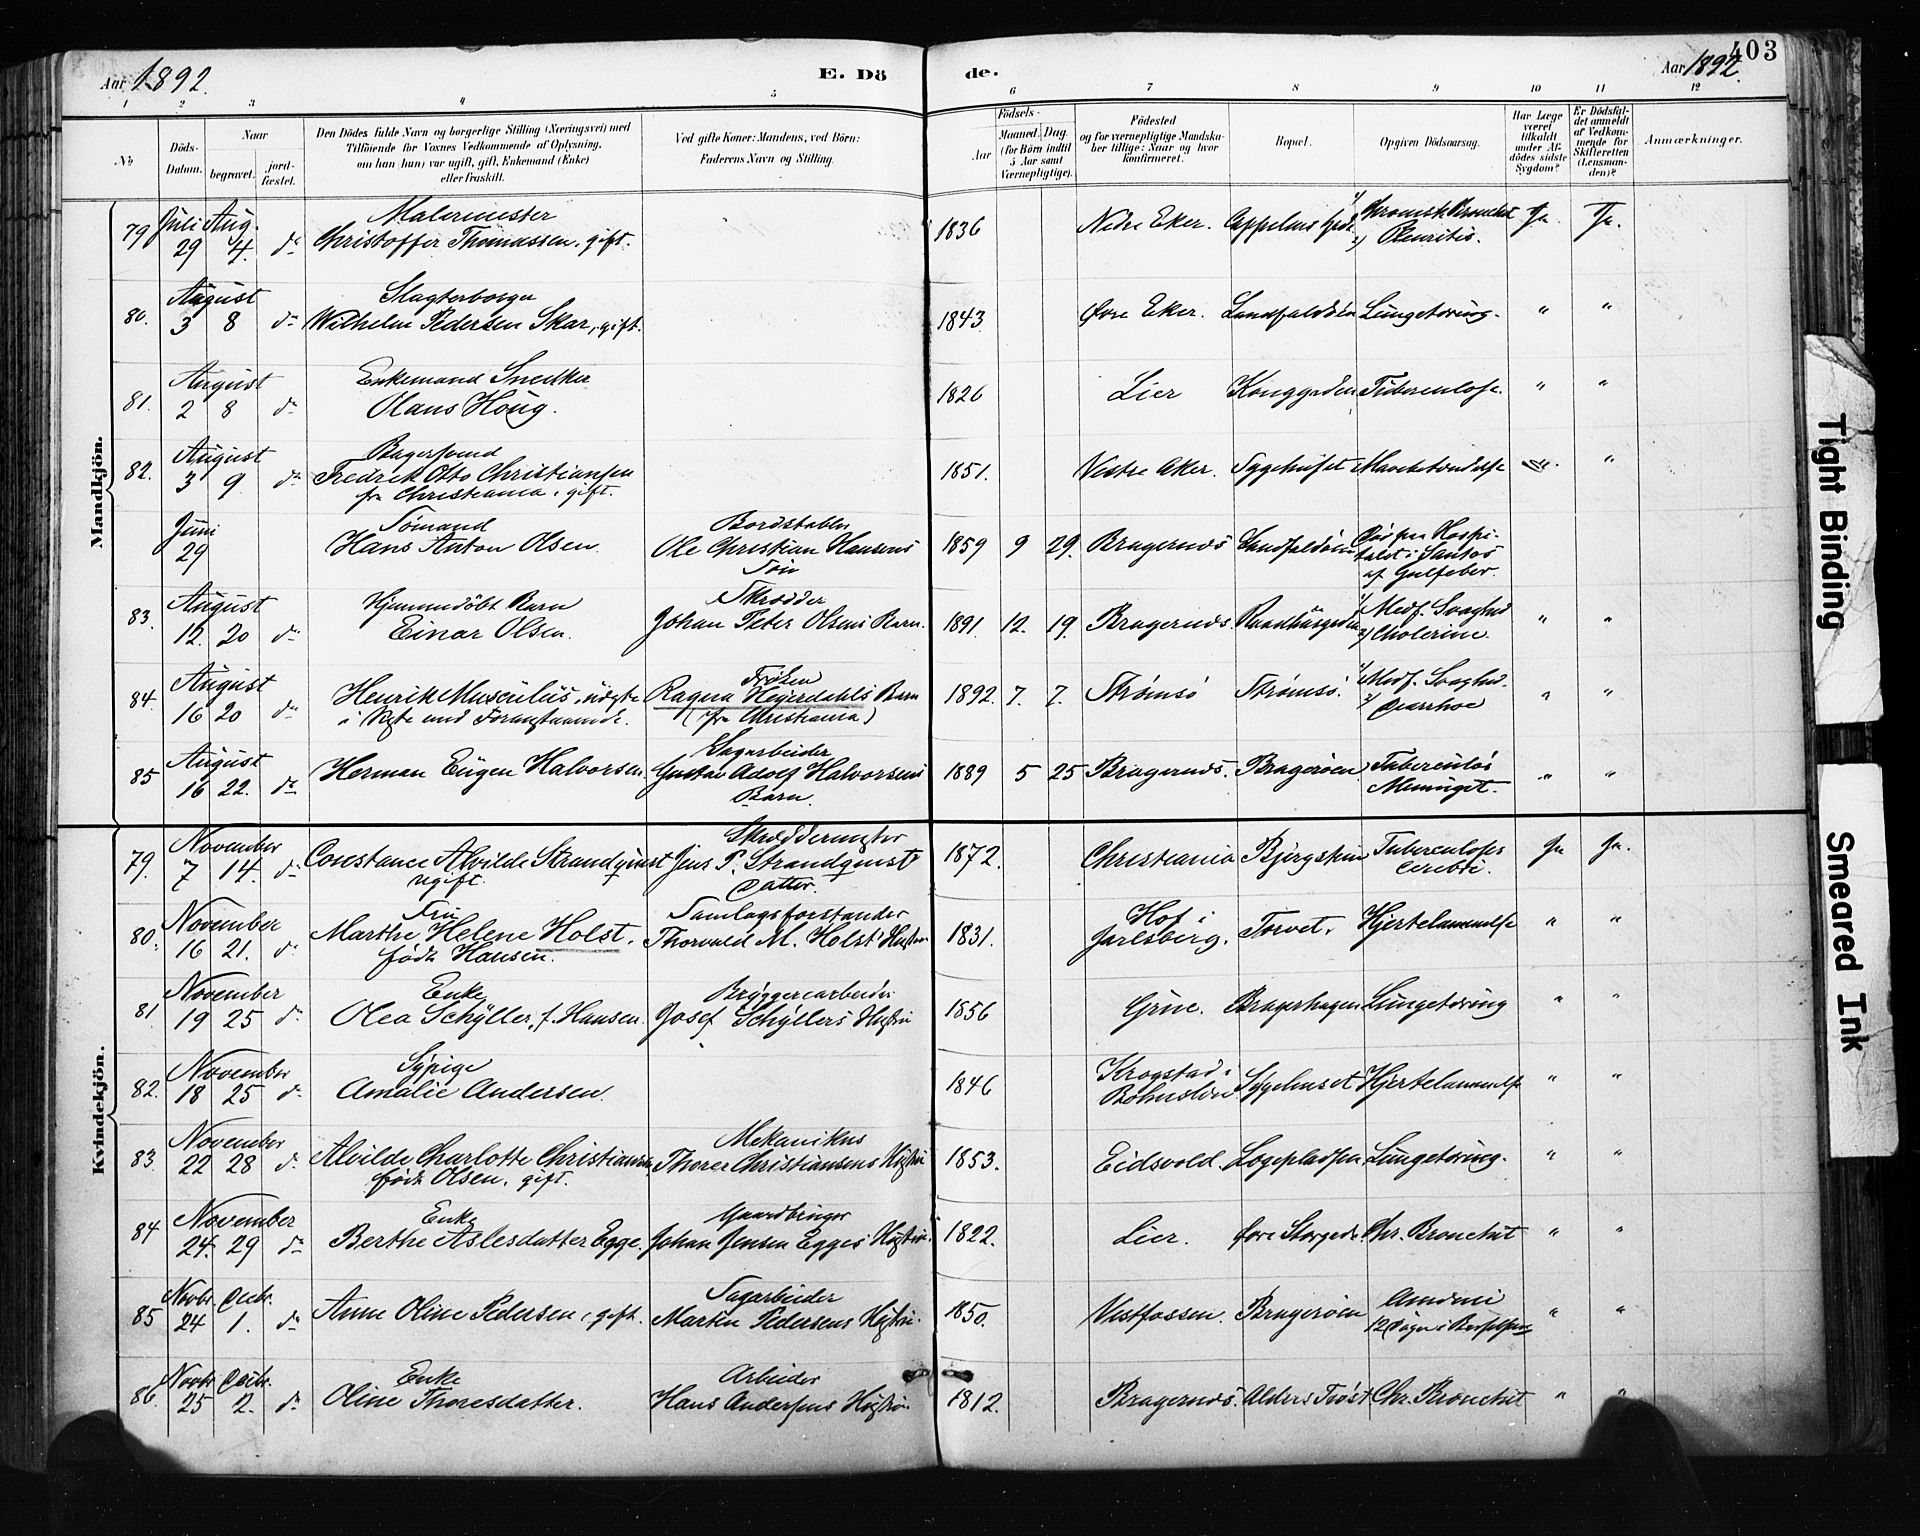 Aar 1892.
E. Dö
de.
Aar 1892.
403
1 2 3 4 5 6 7 8 9 10 11 12
No
Döds-Datum.
Naar
begravet.
jord-fæstet.
Den Dödes fulde Navn og borgerlige Stilling (Næringsvei) med
Tilföiende for Voxnes Vedkommende af Oplysning,
om han (hun) var ugift, gift, Enkemand (Enke)
eller fraskilt.
Ved gifte Koner: Mandens, ved Börn:
Faderens Navn og Stilling.
Födsels-
Aar
Maaned. Dag
(for Börn indtil
5 Aar samt
Værnepligtige).
Födested
og for værnepligtige Mandska-
ber tillige: Naar og hvor
konfirmeret.
Bopæl.
Opgiven Dödsaarsag.
Har Læge
været
tilkaldt
under Af-
dödes sidste
Sygdom?
Er Dödsfal-
det anmeldt
af Vedkom-
mende for
Skifteretten
(Lensman-
den)?
Anmærkninger.
Mandkjön.
79 Juli 29 Aug. 4. do Malermester Christoffer Thomassen, gift. 1836 Nedre Eker. Cappelens 1) Chronisk Bronchit 2) Pleuritis. Ja Ja.
80. August 3 8 do Slagterborger Wilhelm Pedersen Skar, gift. 1843 Øvre Eker. Landfaldöen Lungetæring. " "
81. August 2 8 do Enkemand Snedker Olaus Houg. 1826 Lier Konggaden Tuberculose. " "
82. August 3 9 do Bagersvend Fredrik Otto Christiansen fra Christiania, gift. 1851. Vestre Aker. Sygehuset "
Juni 29 Sømand Hans Anton Olsen. Bordstabler Ole Christian Hansens Søn 1859 9 29. Bragernæs Landfaldöen Død paa Hospitalet i Santos af Gulfeber.
83. August 12. 20 do Hjemmedöbt Barn Einar Olsen. Skrædder Johan Peter Olsens Barn. 1891. 12. 19. Bragernæs. Raadhusgaden 1) Medf. Svaghed 2) Cholerine " "
84. August 16 20 do Henrik Musculus, udgte i Ægte med Foranstaaende. Frøken Ragna Heyerdahls Barn (fra Christiania) 1892 7. 7. Strømsö Strømsö. 1) Medf. Svaghed. 2) Diarrhoe " "
85 August 16 22. do Herman Eugen Halvorsen. Sagarbeider Gustav Adolf Halvorsens Barn. 1889 5 25 Bragernæs. Bragerøen Tuberculös Meninget. " "
Kvindekjön.
79. November 7 14. do Constance Alvilde Strandqvist ugift. Skræddermester Jens P. Strandqvist Datter. 1872. Christiania Bjergstien Tuberculosis cerebri Ja Ja.
80. November 16 21. do Fru Marthe Helene Holst. født Hansen. Samlagsforstander Thorvald M. Holsts Hustru 1831. Hof i Jarlsberg. Torvet. Hjertelammelse " "
81 November 19 25 do Enke Olea Schÿller, f. Hansen. Bryggerearbeider Josef Schÿllers Hustru 1856 Grue. Bragerhagen Lungetæring " "
82. November 18 25 do Sÿpige Amalie Andersen. 1846 Krogstad i Bohuslen Sygehuset Hjertelammelse " "
83. November 22 28 do Alvilde Charlotte Christiansen, født Olsen, gift. Mekanikus Thorer Christiansens Hustru 1853. Eidsvold. Logepladsen Lungetæring. " "
84 November 24. 29 do Enke Berthe Aslesdatter Egge. Gaardbruger Johan Jensen Egges Hustru. 1822. Lier. Øvre Storgade. Chr. Bronchit " "
85 Novbr. 24 Decbr. 1. do Anne Oline Pedersen, gift. Sagarbeider Martin Pedersens Hustru. 1850. Vestfossen. Bragerøen 12 Dage i Barselseng " "
86. Novbr 25 Decbr. 2. do Enke Oline Thoresdatter. Arbeider Hans Andersens Hustru 1812. Bragernæs. Alders Trøst Chr. Bronchit " "
Tight Binding
Smeared Ink